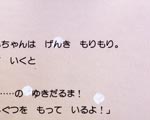 ちゃんは げんき もりもり。
いくと
……の ゆきだるま！
ぐつを もって いるよ！」